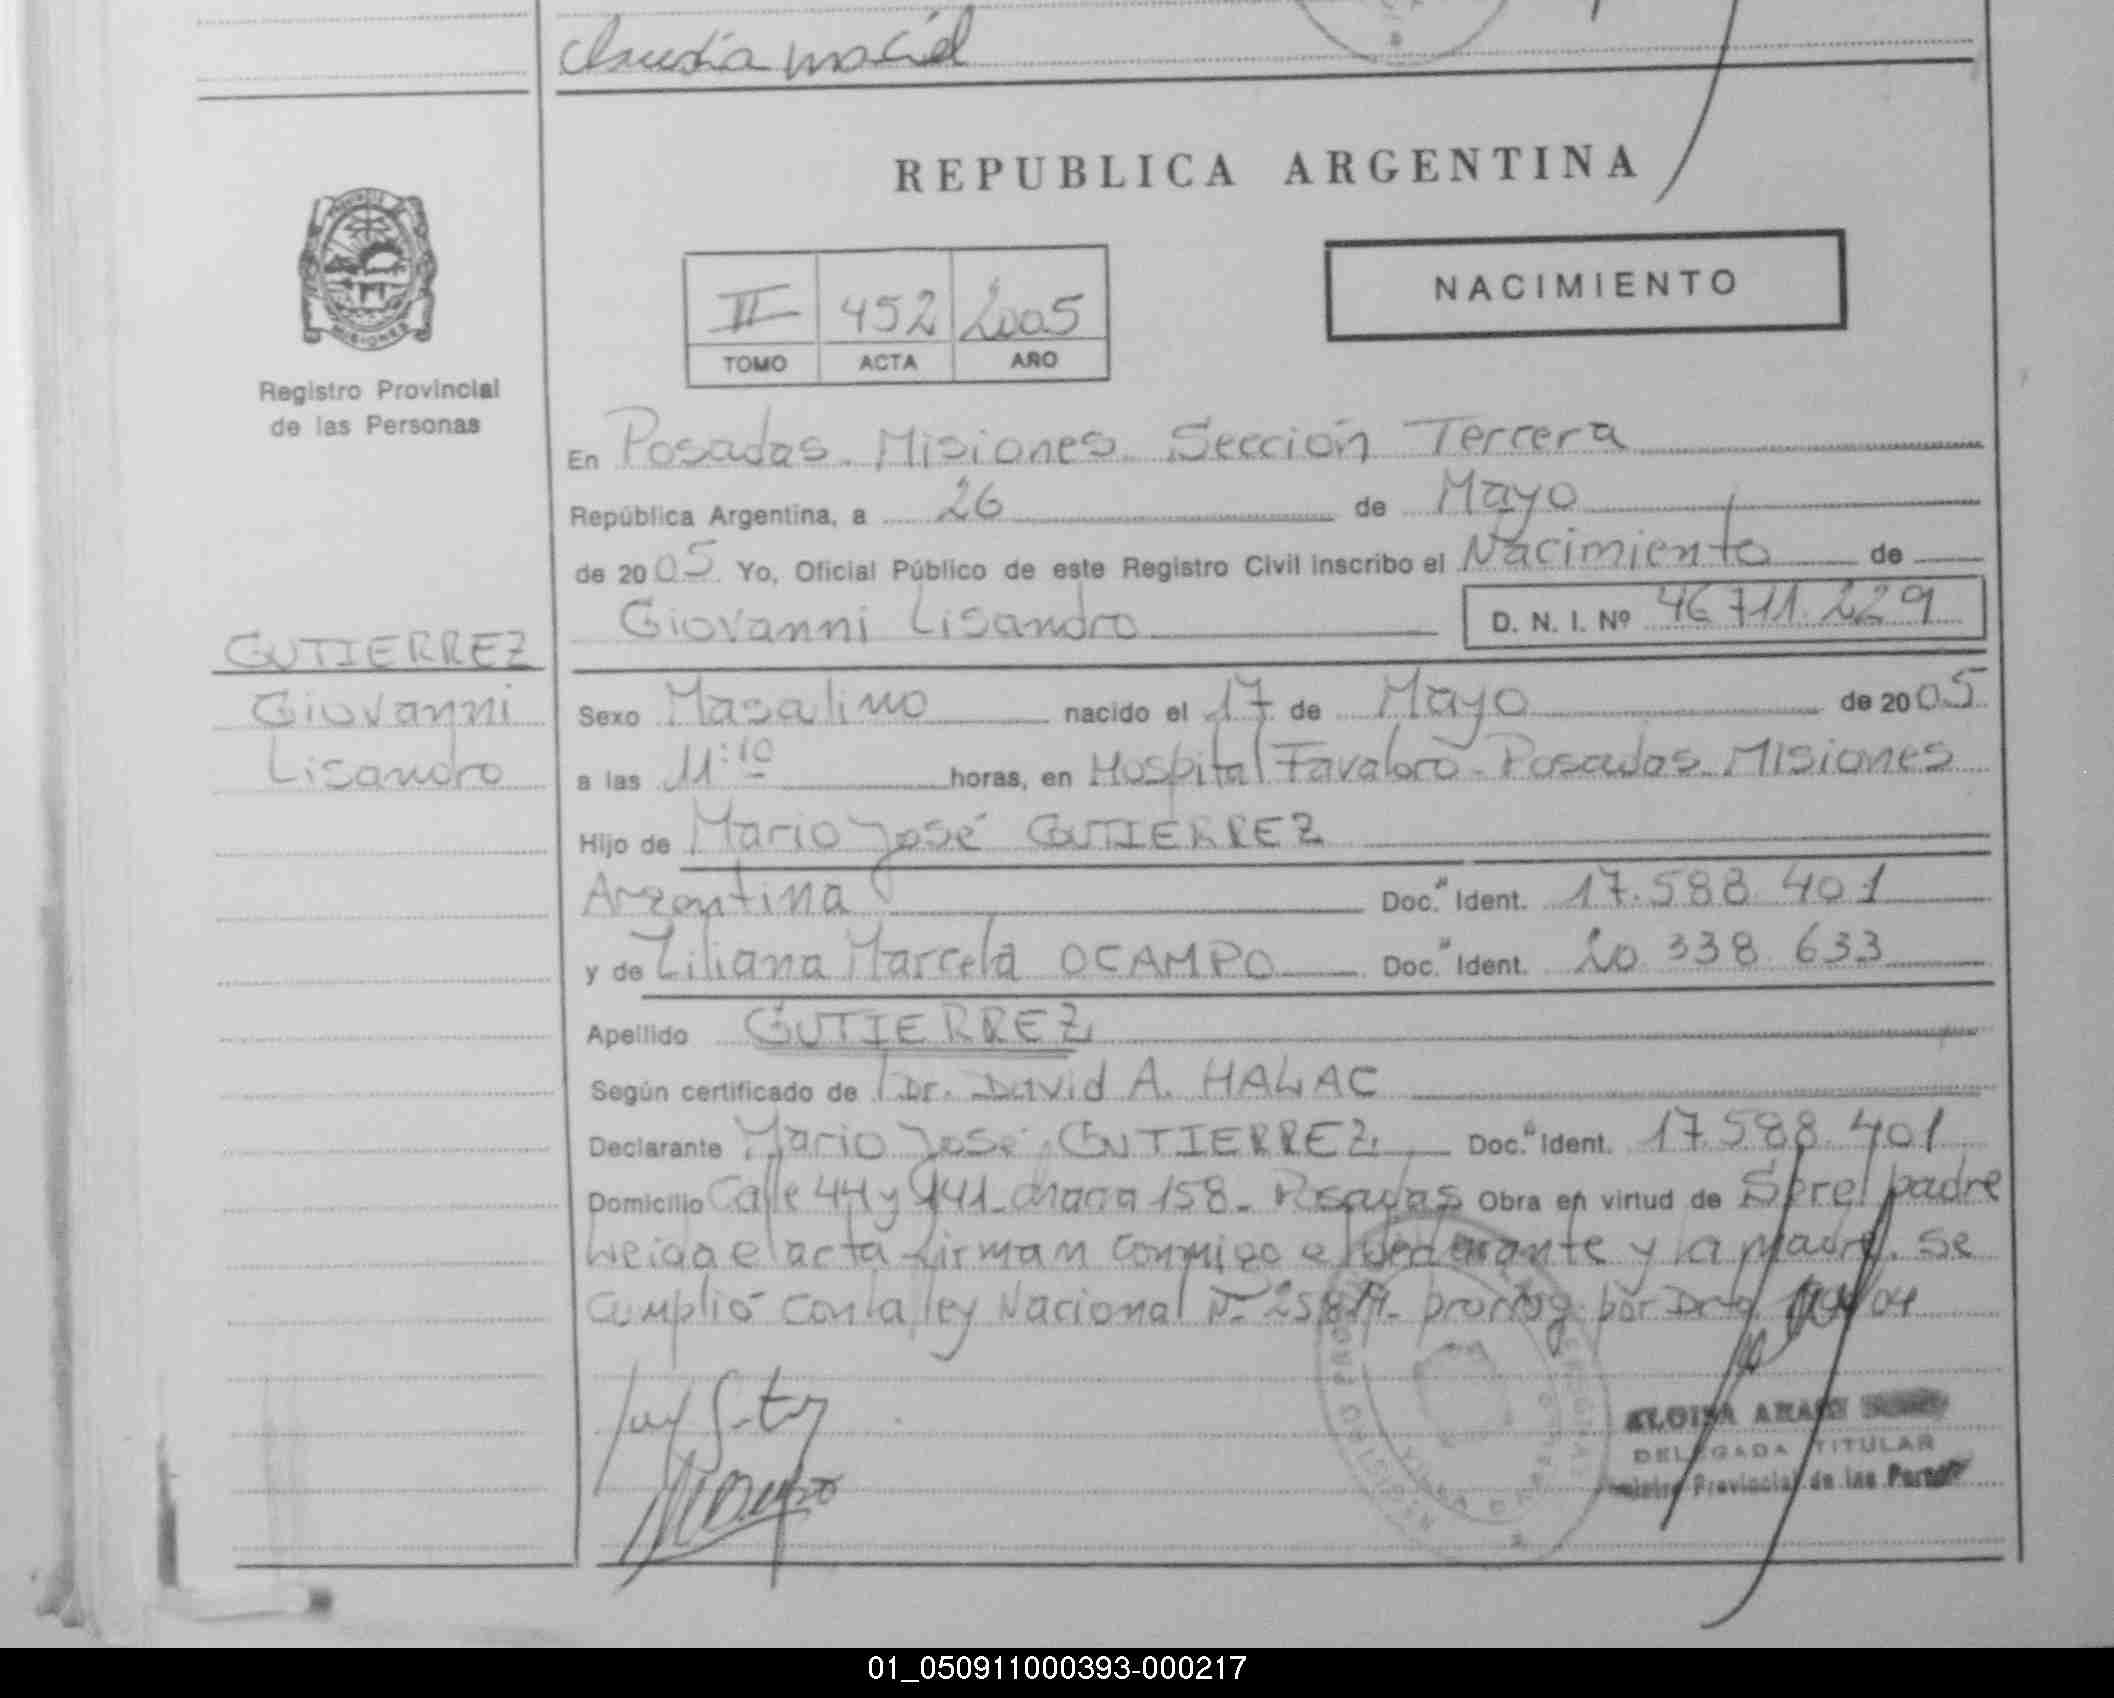 Claudia Maciel
REPUBLICA ARGENTINA
MISIONES
Registro Provincial
de las Personas
II 452 2005
TOMO ACTA AÑO
NACIMIENTO
En Posadas. Misiones. Sección Tercera
República Argentina, a 26 de Mayo
de 2005. Yo, Oficial Público de este Registro Civil inscribo el Nacimiento de
Giovanni Lisandro
D. N. I. Nº 46 711.229
GUTIERREZ
Giovanni
Lisandro
Sexo Masculino nacido el 17 de Mayo de 2005
a las 11:10 horas, en Hospital Favaloro - Posadas. Misiones
Hijo de Mario José GUTIERREZ
Argentina Doc. Ident. 17.588.401
y de Liliana Marcela OCAMPO Doc. Ident. 20 338 633
Apellido GUTIERREZ
Según certificado de Dr. David A. HALAC
Declarante Mario José GUTIERREZ Doc. Ident. 17.588.401
Domicilio Calle 44 y 141 - chacra 158 - Posadas Obra en virtud de Ser el padre
Leida el acta firman conmigo el declarante y la madre. Se
cumplió con la ley Nacional Nº 25819 - prorrog. por 04
DELEGADA TITULAR
Registro Provincial de las Personas
01_050911000393-000217